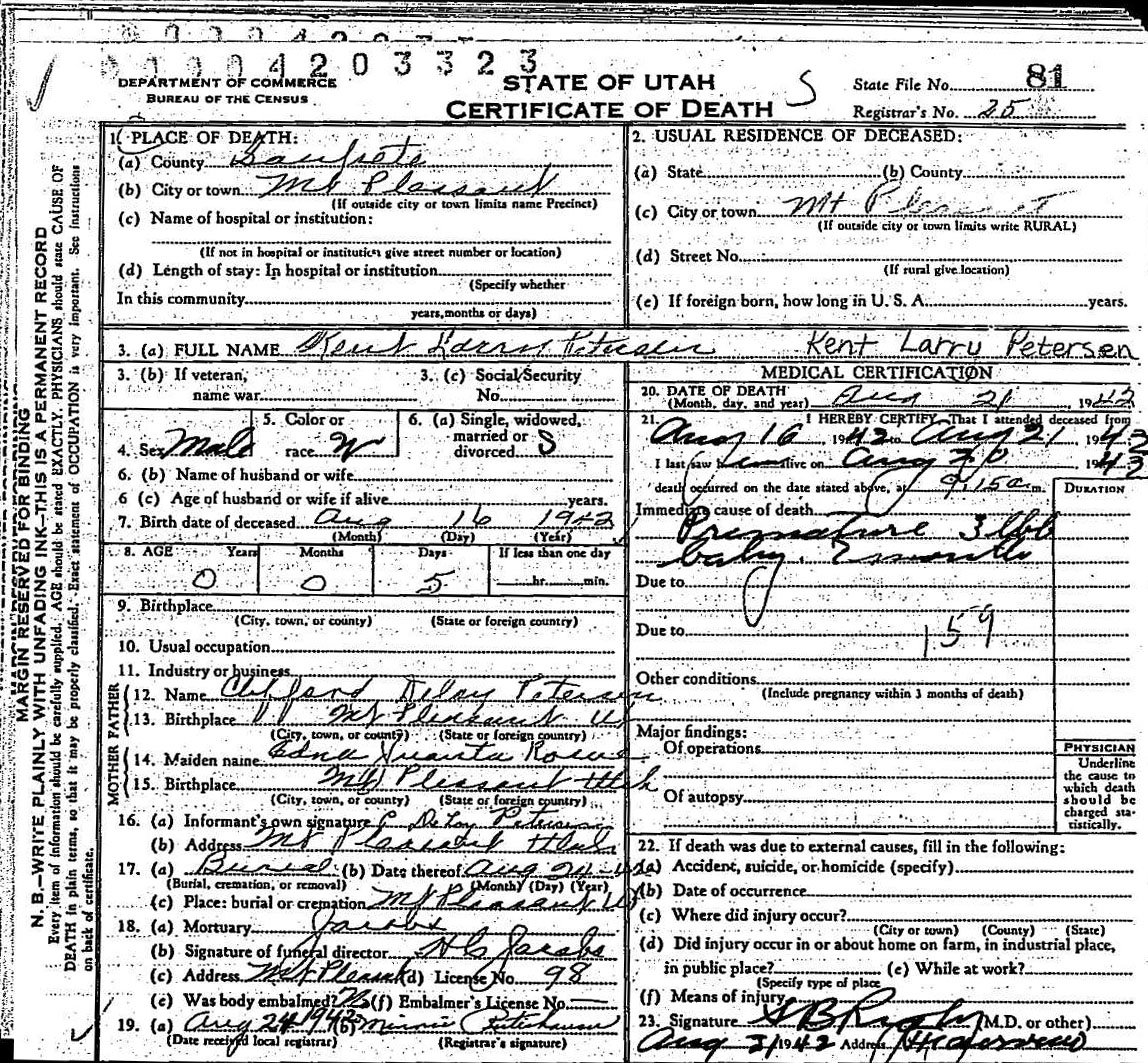 0 0 0 4 2 0 3 3 2 3
DEPARTMENT OF COMMERCE
BUREAU OF THE CENSUS
STATE OF UTAH
CERTIFICATE OF DEATH
S
State File No. 81
Registrar's No. 25
MARGIN RESERVED FOR BINDING
N. B.—WRITE PLAINLY WITH UNFADING INK—THIS IS A PERMANENT RECORD
Every item of information should be carefully supplied. AGE should be stated EXACTLY. PHYSICIANS should state CAUSE OF
DEATH in plain terms, so that it may be properly classified. Exact statement of OCCUPATION is very important. See instructions
on back of certificate.
1. PLACE OF DEATH:
(a) County Sanpete
(b) City or town Mt Pleasant
(If outside city or town limits name Precinct)
(c) Name of hospital or institution:
(If not in hospital or institution give street number or location)
(d) Length of stay: In hospital or institution
(Specify whether
In this community
years, months or days)
2. USUAL RESIDENCE OF DECEASED:
(a) State (b) County
(c) City or town Mt Pleasant
(If outside city or town limits write RURAL)
(d) Street No.
(If rural give location)
(e) If foreign born, how long in U. S. A. years.
3. (a) FULL NAME Kent Larry Petersen Kent Larry Petersen
3. (b) If veteran, name war
3. (c) Social Security No.
4. Sex Male
5. Color or race W
6. (a) Single, widowed, married or divorced S
6. (b) Name of husband or wife
6 (c) Age of husband or wife if alive years.
7. Birth date of deceased Aug 16 1942
(Month) (Day) (Year)
8. AGE Years Months Days If less than one day
0 0 5 hr. min.
9. Birthplace
(City, town, or county) (State or foreign country)
10. Usual occupation
11. Industry or business
FATHER
12. Name Clifford Deloy Petersen
13. Birthplace Mt Pleasant U
(City, town, or county) (State or foreign country)
MOTHER
14. Maiden name Edna Juanta
15. Birthplace Mt Pleasant Utah
(City, town, or county) (State or foreign country)
16. (a) Informant's own signature C DeLoy Petersen
(b) Address Mt Pleasant Utah
17. (a) Burial (b) Date thereof Aug 24-42
(Burial, cremation, or removal) (Month) (Day) (Year)
(c) Place: burial or cremation Mt Pleasant U
18. (a) Mortuary Jacobs
(b) Signature of funeral director H C Jacobs
(c) Address Mt Pleasant (d) License No. 98
(e) Was body embalmed? No (f) Embalmer's License No. —
19. (a) Aug 24 1942 (b) Minnie
(Date received local registrar) (Registrar's signature)
MEDICAL CERTIFICATION
20. DATE OF DEATH Aug 21 1942
(Month, day, and year)
21. I HEREBY CERTIFY, That I attended deceased from
Aug 16 1942 to Aug 21 1942
I last saw him alive on Aug 20, 1942
death occurred on the date stated above, at 9:15 a m.
DURATION
Immediate cause of death
Premature 3 lbs
baby.
Due to
Due to 159
Other conditions
(Include pregnancy within 3 months of death)
Major findings:
Of operations
Of autopsy
PHYSICIAN
Underline
the cause to
which death
should be
charged sta-
tistically.
22. If death was due to external causes, fill in the following:
(a) Accident, suicide, or homicide (specify)
(b) Date of occurrence
(c) Where did injury occur?
(City or town) (County) (State)
(d) Did injury occur in or about home on farm, in industrial place,
in public place? (e) While at work?
(Specify type of place
(f) Means of injury
23. Signature S B Rigby (M.D. or other)
Aug 21 1942 Address